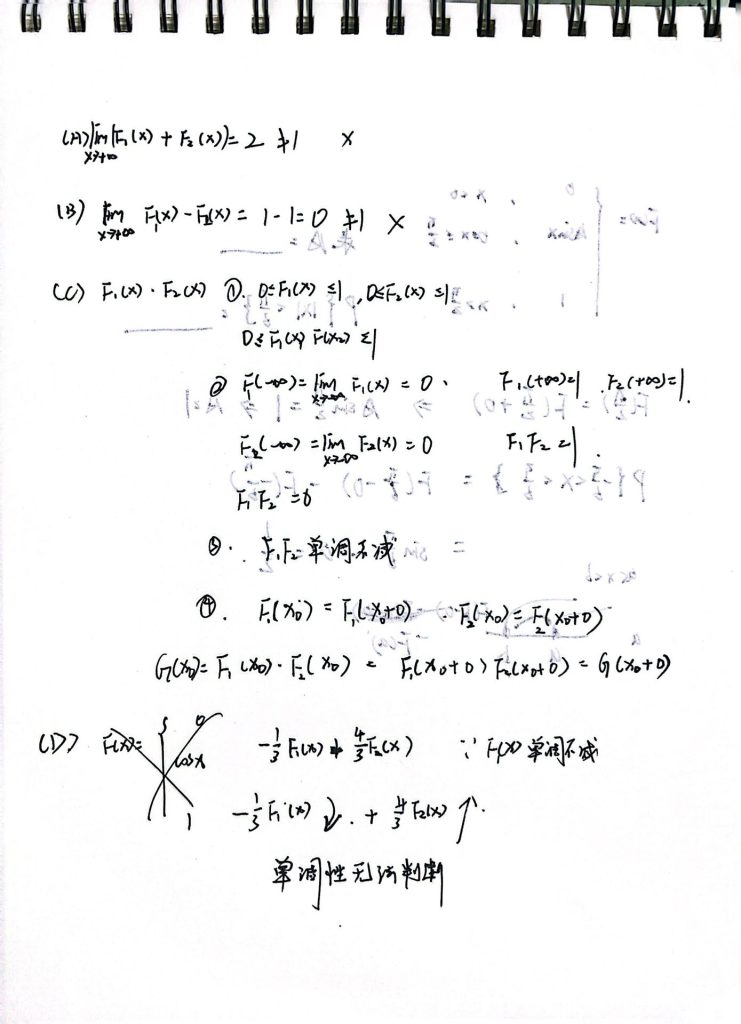 (A) lim[F₁(x) + F₂(x)] = 2 ≠ 1 ×
x→+∞
(B) lim F₁(x) - F₂(x) = 1 - 1 = 0 ≠ 1 ×
x→+∞
(C) F₁(x) · F₂(x) ①. 0≤F₁(x) ≤1, 0≤F₂(x) ≤1
0≤F₁(x) F(x₂) ≤1
② F₁(-∞) = lim F₁(x) = 0. F₁(+∞)=1 . F₂(+∞)=1.
x→-∞
F₂(-∞) = lim F₂(x) = 0 F₁F₂ = 1.
x→-∞
F₁F₂ = 0
③. F₁F₂ 单调不减
④. F₁(x₀) = F₁(x₀+0) . F₂(x₀) = F₂(x₀+0)
G(x₀) = F₁(x₀) · F₂(x₀) = F₁(x₀+0) F₂(x₀+0) = G(x₀+0)
(D) -1/3 F₁(x) + 4/3 F₂(x) ∵ F(x) 单调不减
-1/3 F₁(x) ↓. + 4/3 F₂(x) ↑.
单调性无法判断